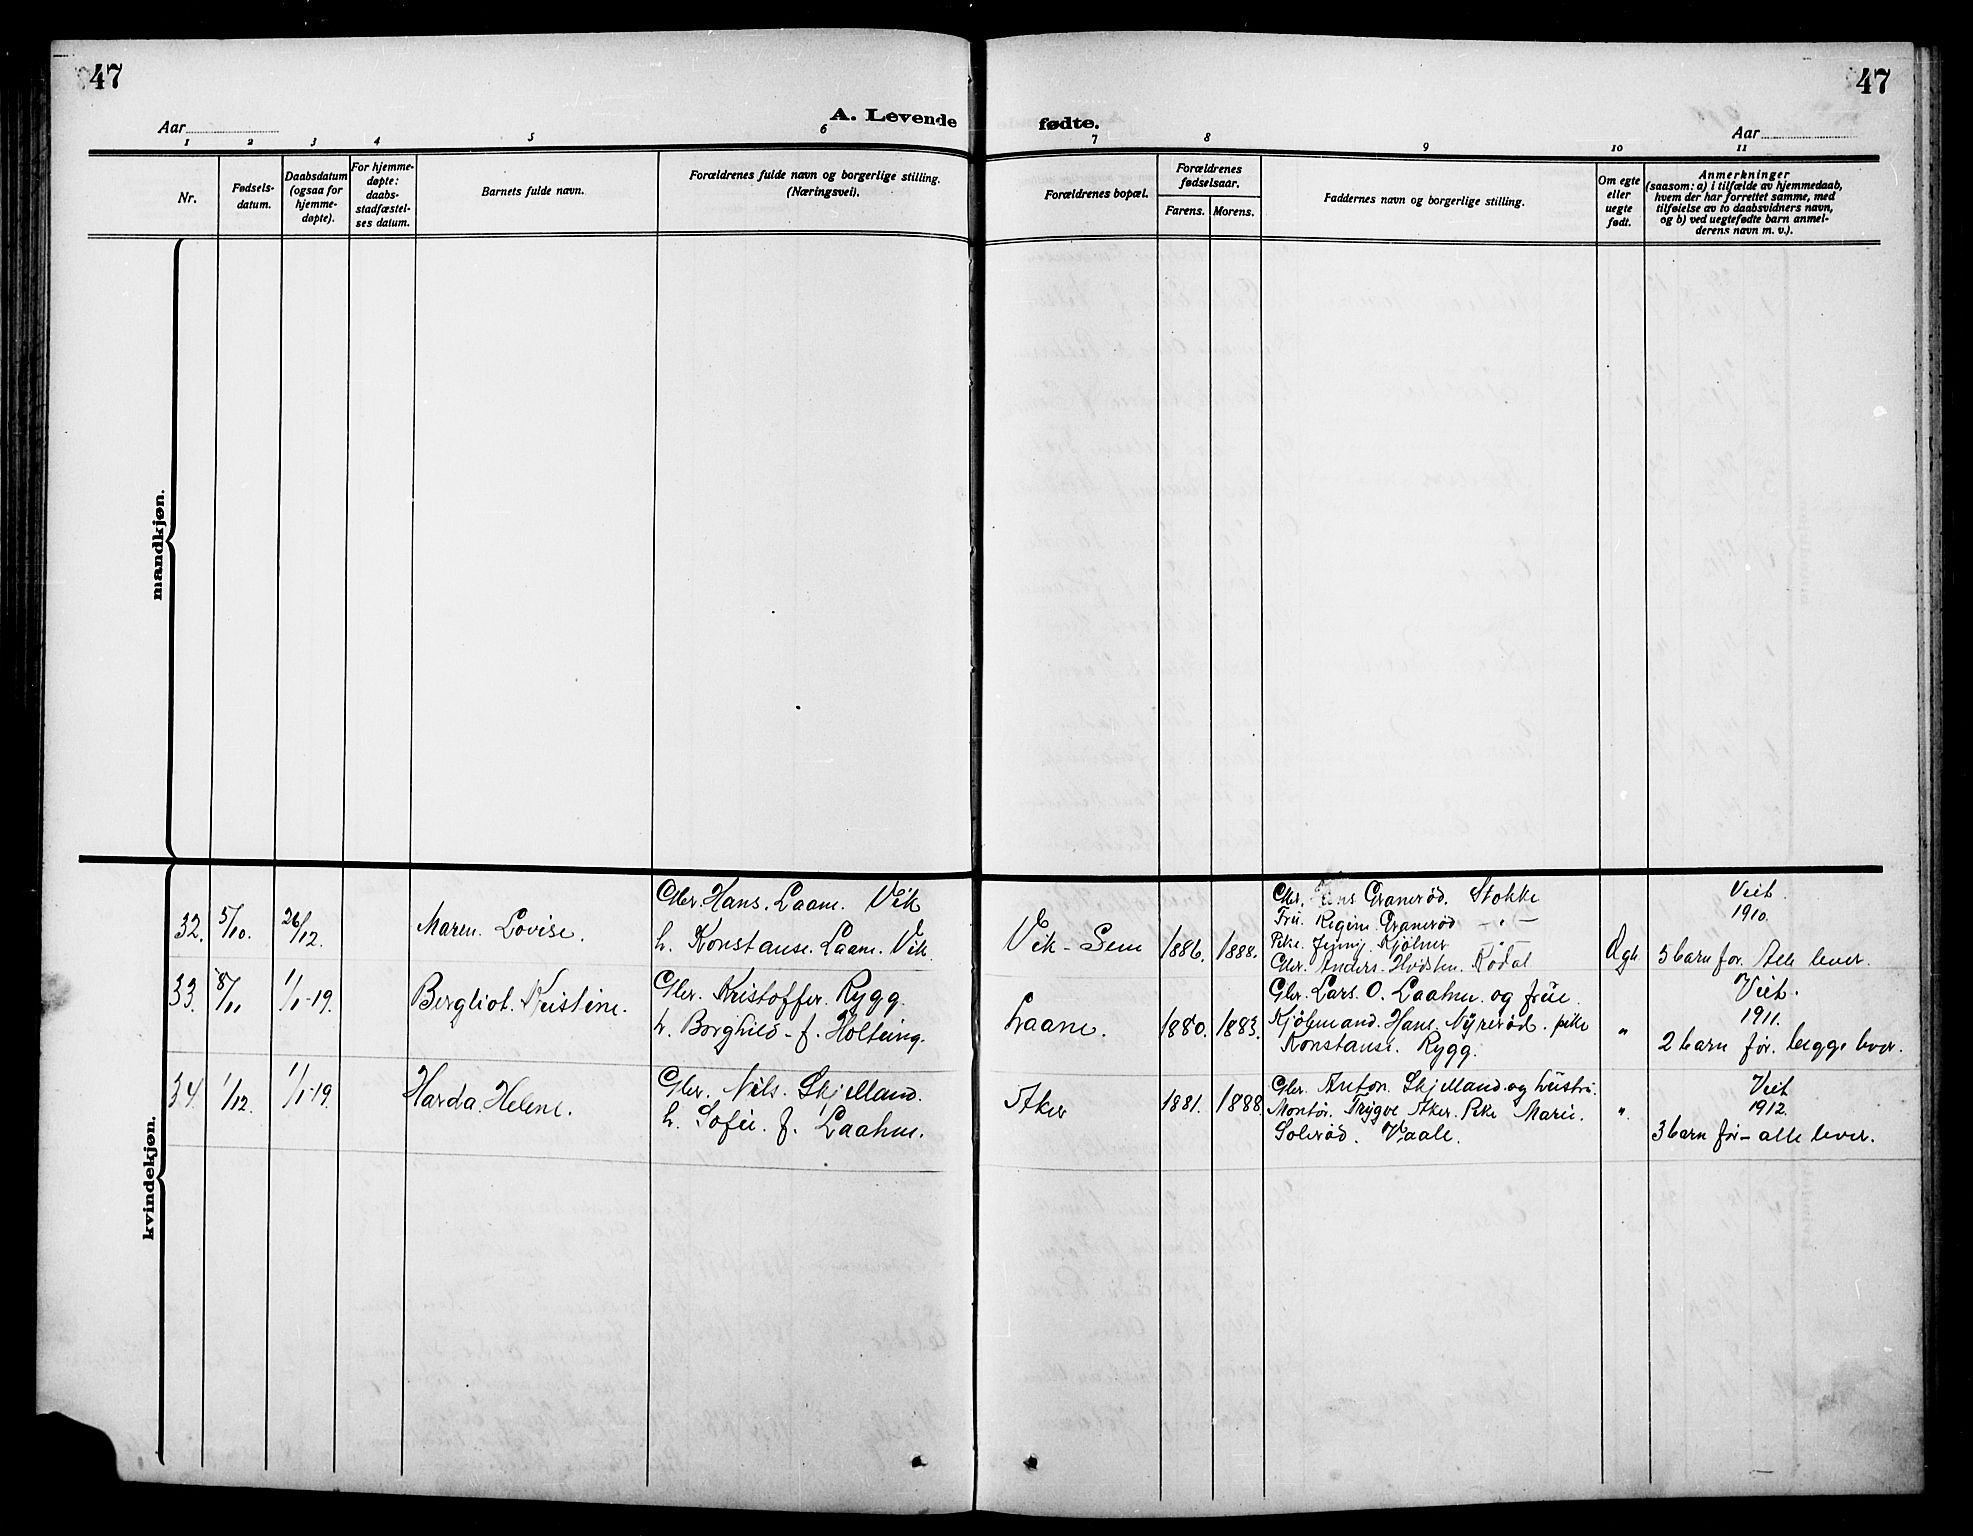 47
47
A. Levende fødte.
Aar
Aar
1 2 3 4 5 6 7 8 9 10 11
Nr.
Fødsels-
datum.
Daabsdatum
(ogsaa for
hjemme-
døpte).
For hjemme-
døpte:
daabs-
stadfæstel-
ses datum.
Barnets fulde navn.
Forældrenes fulde navn og borgerlige stilling.
(Næringsvei).
Forældrenes bopæl.
Forældrenes
fødselsaar.
Farens. Morens.
Faddernes navn og borgerlige stilling.
Om egte
eller
uegte
født.
Anmerkninger
(saasom: a) i tilfælde av hjemmedaab,
hvem der har forrettet samme, med
tilføielse av to daabsvidners navn,
og b) ved uegtefødte barn anmel-
derens navn m. v.).
mandkjøn.
kvindekjøn.
32. 5/10. 26/12. Maren. Lovise.
Gbr. Hans. Laane. Vik
h. Konstanse. Laane. Vik.
Vik - Sem 1886. 1888.
Granerød. Stokke
Fru. Regine. Granerød - " -
Pike. Kjølner - " -
Gbr. Anders. Hvidsten. Rødal
Egte
Veit.
1910.
5 barn før. Alle lever.
33. 8/11 1/1-19. Bergliot. Kristine.
Gbr. Kristoffer. Rygg.
h. Borghild - f. Holteing.
Laane. 1880. 1883.
Gbr. Lars. O. Laahne. og frue.
Kjøbmand. Hans. Nyrerød. pike
Konstanse. Rygg.
"
Veit.
1911.
2 barn før. begge lever.
34 1/12. 1/1-19. Harda. Helene.
Gbr. Nils. Skjelland.
h. Sofie. f. Laahne.
Aker 1881. 1888.
Gbr. Anton. Skjelland. og hustru.
Montør. Trygve Aker. Pike Marie.
Solerød. Vaale.
".
Veit
1912.
3 barn før - alle lever.